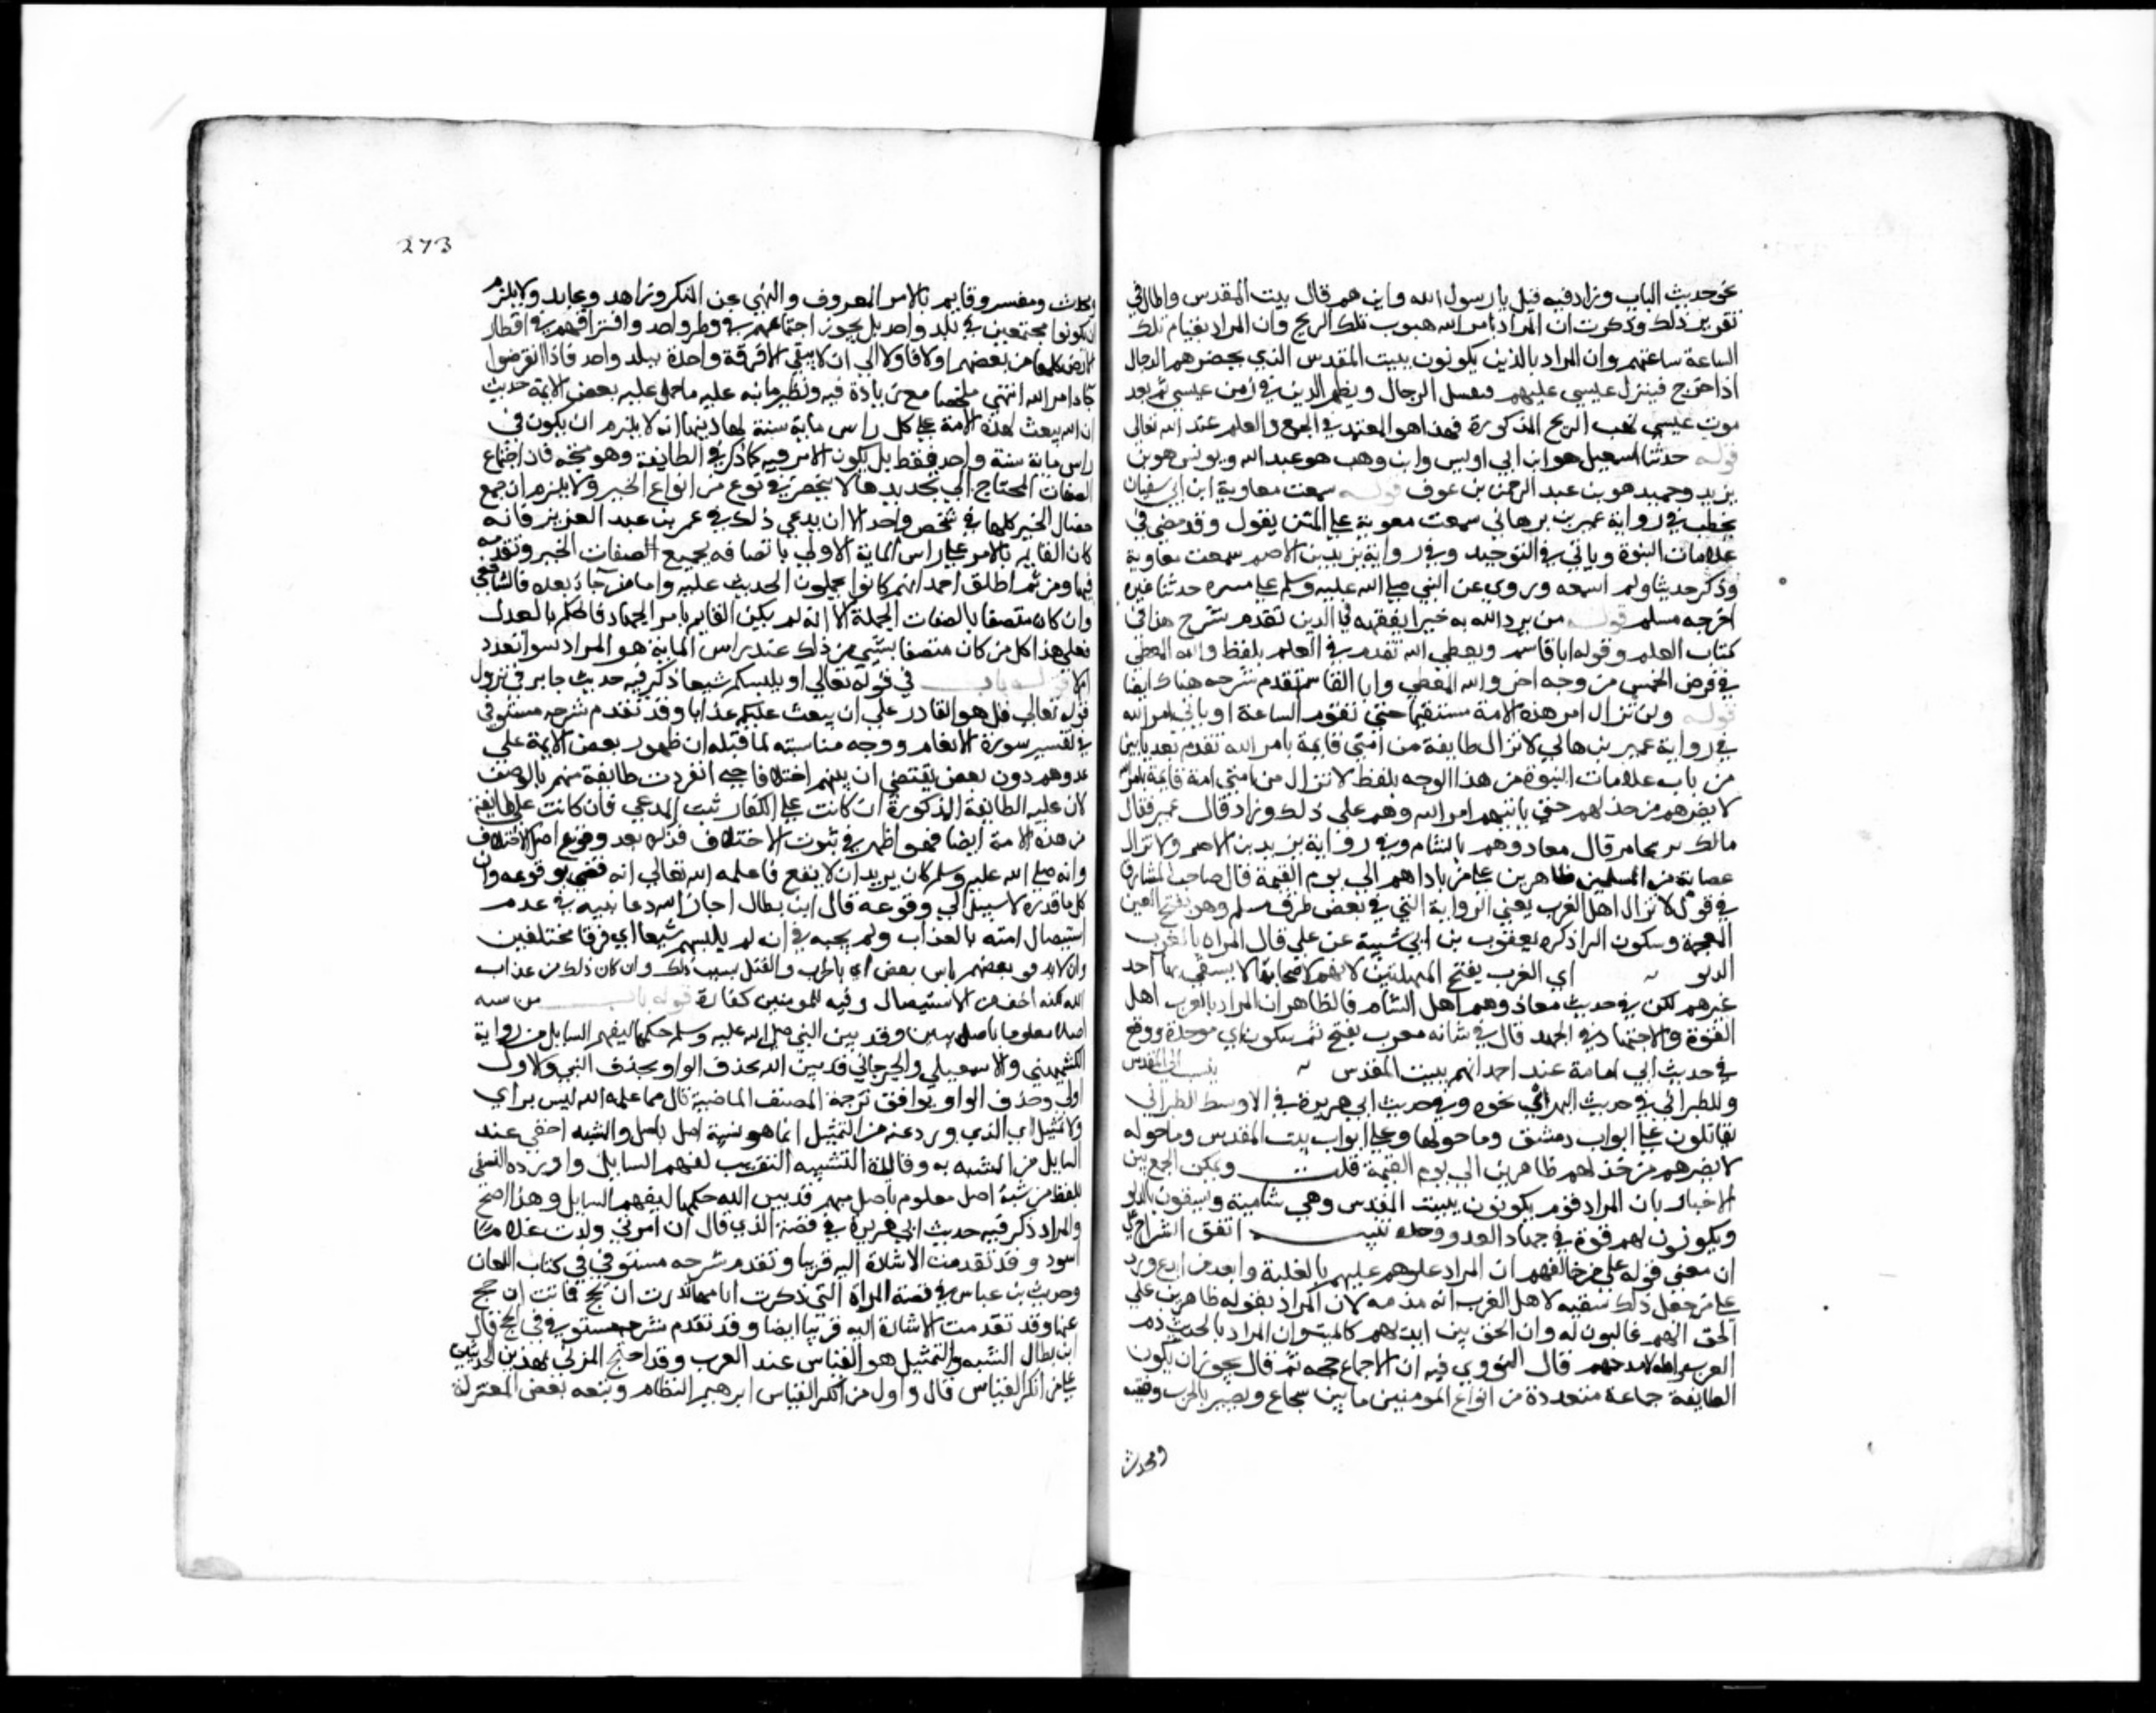 نحو حديث الباب وزاد فيه قيل يا رسول الله واين هم قال بيت المقدس واطال في
تقرير ذلك وذكرت ان المراد بامر الله هبوب تلك الريح وان المراد بقيام تلك
الساعة ساعتهم وان المراد بالذين يكونون ببيت المقدس الذي يحضرهم الدجال
اذا خرج فينزل عيسى عليهم فيقتل الدجال ويظهر الدين في زمن عيسى ثم بعد
موت عيسى تهب الريح المذكورة فهذا هو المعتمد في الجمع والعلم عند الله تعالى
قوله حدثنا اسمعيل هو ابن ابي اويس وابن وهب هو عبد الله ويونس هو بن
يزيد وحميد هو بن عبد الرحمن بن عوف قوله سمعت معاوية ابن ابي سفيان
يخطب في رواية عمير بن هاني سمعت معوية على المنبر يقول وقد مضى في
علامات النبوة وياتي في التوحيد وفي رواية يزيد بن الاصم سمعت معاوية
وذكر حديثا ولم اسمعه وروى عن النبي صلى الله عليه وسلم على منبره حدثنا غيره
اخرجه مسلم قوله من يرد الله به خيرا يفقهه في الدين تقدم شرح هذا في
كتاب العلم وقوله انا قاسم ويعطي الله تقدم في العلم بلفظ والله المعطي
في فرض الخمس من وجه اخر والله المعطي وانا القاسم تقدم شرحه هناك ايضا
قوله ولن تزال امر هذه الامة مستقيما حتى تقوم الساعة او ياتي امر الله
في رواية عمير بن هاني لا تزال طايفة من امتي قايمة بامر الله تقدم بعد بابين
من باب علامات النبوة من هذا الوجه بلفظ لا تزال من امتي امة قايمة بامر الله
لا يضرهم من خذلهم حتى ياتيهم امر الله وهم على ذلك وزاد قال عمير فقال
مالك بن يخامر قال معاذ وهم بالشام وفي رواية يزيد بن الاصم ولا تزال
عصابة من المسلمين ظاهرين على من ناواهم الى يوم القيمة قال صاحب المشارق
في قوله لا تزال اهل الغرب يعني الرواية التي في بعض طرق مسلم وهي بفتح الغين
المعجمة وسكون الرا ذكر يعقوب بن ابي شيبة عن علي قال المراد بالغرب
الدلو اي الغرب بفتح المهملتين لانهم اصحابها لا يستقي بها احد
غيرهم لكن في حديث معاذ وهم اهل الشام فالظاهر ان المراد بالغرب اهل
القوة والاجتهاد في الجهد قال في شانه مغرب بفتح ثم سكون اي موحدة ووقع
في حديث ابي امامة عند احمد انهم ببيت المقدس ينسب الى المقدس
وللطبراني في حديث النهدي نحوه وفي حديث ابي هريرة في الاوسط للطبراني
يقاتلون على ابواب دمشق وما حولها وعلى ابواب بيت المقدس وما حوله
لا يضرهم من خذلهم ظاهرين الى يوم القيمة قلت ويمكن الجمع بين
الاخبار بان المراد قوم يكونون ببيت المقدس وهي شامية ويسقون بالدلو
ويكونون لهم قوة في جهاد العدو وحده تنبيه اتفق الشراح على
ان معنى قوله على من خالفهم ان المراد علوهم عليهم بالغلبة وابعد من ابدع ورد
على من جعل ذلك منقبة لاهل الغرب انه مذمة لان المراد بقوله ظاهرين على
الحق انهم غالبون له وان الحق بين ايديهم كالميت وان المراد بالحديث ذم
الغرب واهله لا مدحهم قال النووي فيه ان الاجماع حجة ثم قال يجوز ان يكون
الطايفة جماعة متعددة من انواع المومنين ما بين شجاع وبصير بالحرب وفقيه
ومحدث
273
ومحدث ومفسر وقايم بالامر المعروف والنهي عن المنكر وزاهد وعابد ولا يلزم
ان يكونوا مجتمعين في بلد واحد بل يجوز اجتماعهم في قطر واحد وافتراقهم في اقطار
الارض كلها من بعضهم اولا فاولا الى ان لا يبقى الا فرقة واحدة ببلد واحد فاذا انقرضوا
جا امر الله انتهى ملخصا مع زيادة فيه ونظير ما نبه عليه ما حمل عليه بعض الايمة حديث
ان الله يبعث لهذه الامة على كل راس ماية سنة لها دينها انه لا يلزم ان يكون في
راس ماية سنة واحد فقط بل يكون الامر فيه كما ذكر في الطايفة وهو متجه فان اجتماع
الصفات المحتاج الى تجديدها لا ينحصر في نوع من انواع الخير ولا يلزم ان جميع
خصال الخير كلها في شخص واحد الا ان يدعى ذلك في عمر بن عبد العزيز فانه
كان القايم بالامر على راس الماية الاولى باتصافه بجميع الصفات الخير وتقدمه
فيها ومن ثم اطلق احمد انهم كانوا يحملون الحديث عليه واما من جا بعده فالشافعي
وان كان متصفا بالصفات الجملة الا انه لم يكن القايم بامر الجهاد فالحكم بالعدل
فعلى هذا كل من كان متصفا بشي من ذلك عند راس الماية هو المراد سوا تعدد
ام لا قوله باب في قوله تعالى او يلبسكم شيعا ذكر فيه حديث جابر في نزول
قوله تعالى قل هو القادر على ان يبعث عليكم عذابا وقد تقدم شرحه مستوفى
في تفسير سورة الانعام ووجه مناسبته لما قبله ان ظهور بعض الايمة على
عدوهم دون بعض يقتضي ان بينهم اختلافا حتى انفردت طايفة منهم بالوصف
لان غلبة الطايفة المذكورة ان كانت على الكفار ثبت المدعي فان كانت على طايفة
من هذه الامة ايضا فهو اظهر في ثبوت الاختلاف فذكر بعد وقوع اصل الاختلاف
وانه صلى الله عليه وسلم كان يريد ان لا يقع فاعلمه الله تعالى انه قضى بوقوعه وان
كل ما قدره لا سبيل الى وقوعه قال ابن بطال اجاز الله دعا نبيه في عدم
استيصال امته بالعذاب ولم يجبه في انه لم يلبسهم شيعا اي فرقا مختلفين
وان لا يذيق بعضهم باس بعض اي بالحرب والقتل بسبب ذلك وان كان ذلك من عذاب
الله لكنه اخف من الاستيصال وفيه للمومنين كفارة قوله باب من شبه
اصلا معلوما باصل مبين وقد بين النبي صلى الله عليه وسلم حكمها ليفهم السايل من رواية
الكشميهني والاسمعيلي والجرجاني قد بين الله بحذف الواو بحذف النبي والاول
اولى وحذف الواو يوافق ترجمة المصنف الماضية قال مما علمه الله ليس براي
ولا تمثيل اي الذي ورد عنه من التمثيل انما هو تشبيه اصل باصل والمشبه اخفى عند
السايل من المشبه به وفايدة التشبيه التقريب لفهم السايل واورده النسفي
بلفظ من شبه اصل معلوم باصل مبهم قد بين الله حكمها ليفهم السايل وهذا اصح
والمراد ذكر فيه حديث ابي هريرة في قصة الذي قال ان امراتي ولدت غلاما
اسود وقد تقدمت الاشارة اليه قريبا وتقدم شرحه مستوفى في كتاب اللعان
وحديث بن عباس في قصة المراة التي ذكرت ان امها نذرت ان تحج فماتت ان تحج
عنها وقد تقدمت الاشارة اليه قريبا ايضا وقد تقدم شرحه مستوفى في الحج قال
ابن بطال التشبيه والتمثيل هو القياس عند العرب وقد احتج المزني بهذين الحديثين
على من انكر القياس قال واول من انكر القياس ابرهيم النظام وتبعه بعض المعتزلة